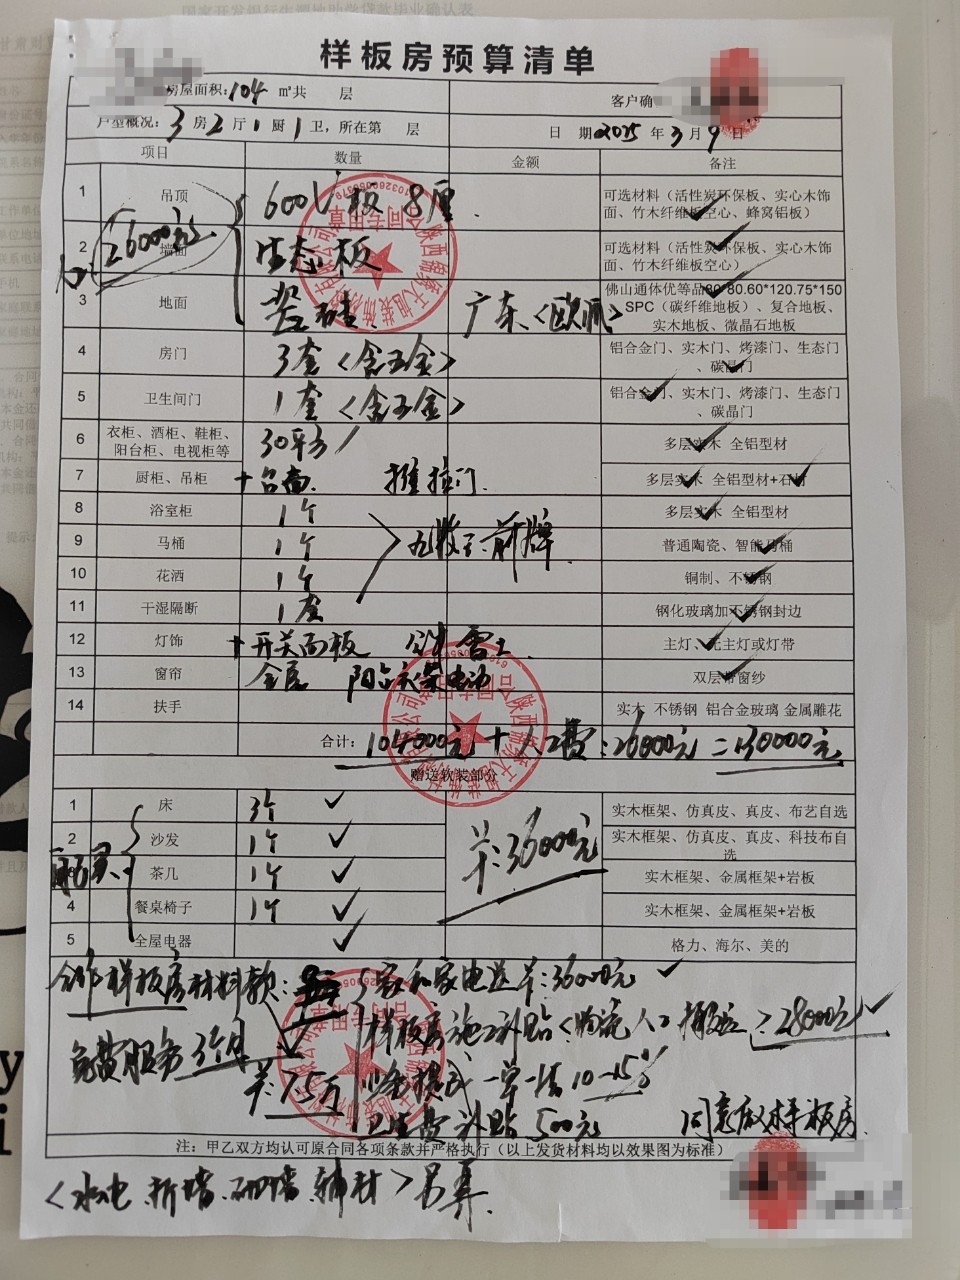 样板房预算清单
房屋面积:104 ㎡共 层
客户确
户型概况:3房2厅1厨1卫,所在第 层
日 期2025年3月9日
项目 数量 金额 备注
1 吊顶 600V板 8厘 可选材料(活性炭环保板、实心木饰面、竹木纤维板空心、蜂窝铝板)
26000元
2 墙面 生态板 可选材料(活性炭环保板、实心木饰面、竹木纤维板空心)
3 地面 瓷砖 广东 佛山通体优等品80*80.60*120.75*150、SPC(碳纤维地板)、复合地板、实木地板、微晶石地板
4 房门 3套<含五金> 铝合金门、实木门、烤漆门、生态门、碳晶门
5 卫生间门 1套<含五金> 铝合金门、实木门、烤漆门、生态门、碳晶门
6 衣柜、酒柜、鞋柜、阳台柜、电视柜等 30平方 多层实木 全铝型材
7 厨柜、吊柜 +台面 推拉门 多层实木 全铝型材+石材
8 浴室柜 1个 多层实木 全铝型材
9 马桶 1个 普通陶瓷、智能马桶
10 花洒 1个 铜制、不锈钢
11 干湿隔断 1套 钢化玻璃加不锈钢封边
12 灯饰 +开关面板 主灯、无主灯或灯带
13 窗帘 全屋 双层带窗纱
14 扶手 实木 不锈钢 铝合金玻璃 金属雕花
合计:104000元+人工费:26000元=130000元
赠送软装部份
1 床 3个 ✓ 实木框架、仿真皮、真皮、布艺自选
2 沙发 1个 ✓ 实木框架、仿真皮、真皮、科技布自选
36000元
3 茶几 1个 ✓ 实木框架、金属框架+岩板
4 餐桌椅子 1个 ✓ 实木框架、金属框架+岩板
5 全屋电器 ✓ 格力、海尔、美的
合作样板房材料款:
家和家电送 36000元 ✓
样板房施工补贴<物流人>搬运=28000元 ✓
免费服务3个月
7.5万
一单一结10-15%
卫生费补贴500元
同意做样板房
注:甲乙双方均认可原合同各项条款并严格执行(以上发货材料均以效果图为标准)
<水电.拆墙.砌墙.辅材>另算.